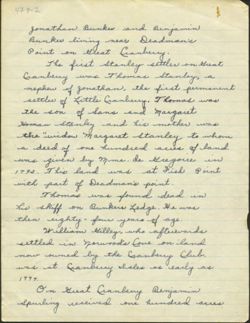 Jonathan Bunker and Benjamin
Bunker living near Deadman's
Point on Great Cranberry.
The first Stanley settler on Great
Cranberry was Thomas Stanley, a
nephew of Jonathan, the first permanent
settler of Little Cranberry. Thomas was
the son of and Margaret
Stanley and his mother was
the widow Margaret Stanley to whom
a deed of one hundred acres of land
was given by Mme. de Gregoire in
1792. This land was at Fish Point
with part of Deadman's point.
Thomas was found dead in
his skiff on Bunkers Ledge. He was
then eighty-four years of age
William who afterwards
settled in Norwoods Cove on land
now owned by the Cranberry Club
was at Cranberry Isles as early as
On Great Cranberry Benjamin
Spurling received one hundred acres